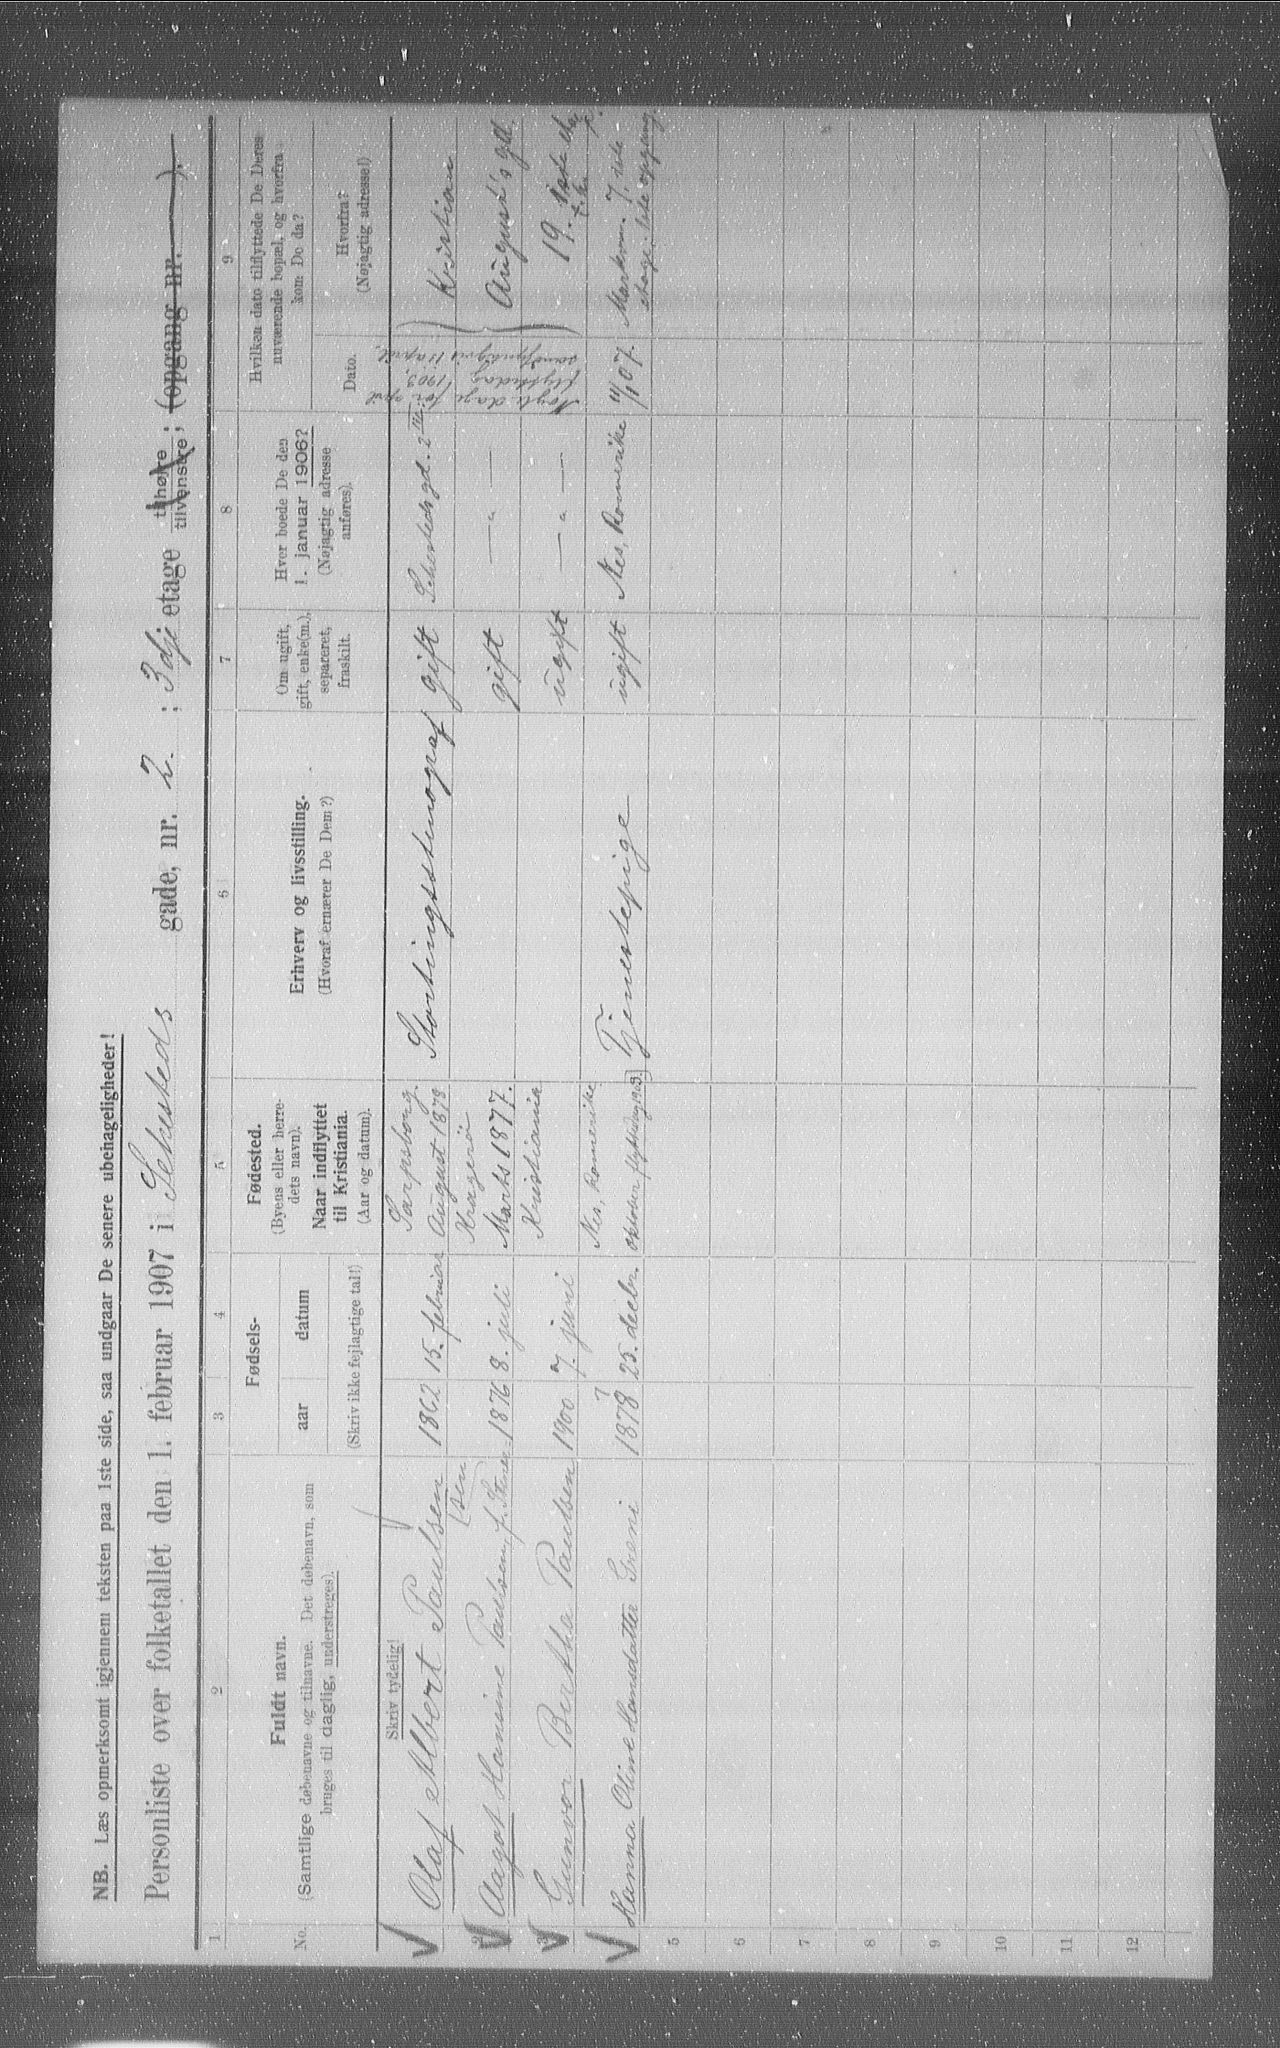 NB. Læs opmerksomt igjennem teksten paa 1ste side, saa undgaar De senere ubehageligheder!
Personliste over folketallet den 1. februar 1907 i Sehesteds gade, nr. 2. ; 3dje etage tilhøjre tilvenstre ; (opgang nr. ).
1 2 3 4 5 6 7 8 9
No.
Fuldt navn.
(Samtlige døbenavne og tilnavne. Det døbenavn, som
bruges til daglig, understreges).
Skriv tydelig!
Fødsels-
aar datum
(Skriv ikke fejlagtige tal!)
Fødested.
(Byens eller herre-
dets navn).
Naar indflyttet
til Kristiania.
(Aar og datum).
Erhverv og livsstilling.
(Hvoraf ernærer De Dem?)
Om ugift,
gift, enke(m.),
separeret,
fraskilt.
Hvor boede De den
1. januar 1906?
(Nøjagtig adresse
anføres).
Hvilken dato tilflyttede De Deres
nuværende bopæl, og hvorfra
kom De da?
Dato.
Hvorfra?
(Nøjagtig adresse!)
Olaf Albert Paulsen 1862 15. februar Sarpsborg. August 1878 Stortingsstenograf gift Sehesteds gd. 2 III Kristian
2 Aagot Hansine Paulsen, f. Steen- (sen 1876 8. juli Kragerø Marts 1877. gift — " — August's gd.
3 Gunvor Bertha Paulsen 1900 7. juni Kristiania ugift — " — 19. 1ste
Nogle dage før april
flyttedag 1903,
11 april.
Hanna Oline Hansdatter Greni 1878 25. decbr. Nes, Romerike oktober flyttedag 1903. Tjenestepige ugift Nes, Romerike 11/1 07. Markvn. 7, 1ste
etage. 1ste opgang
5
6
7
8
9
10
11
12